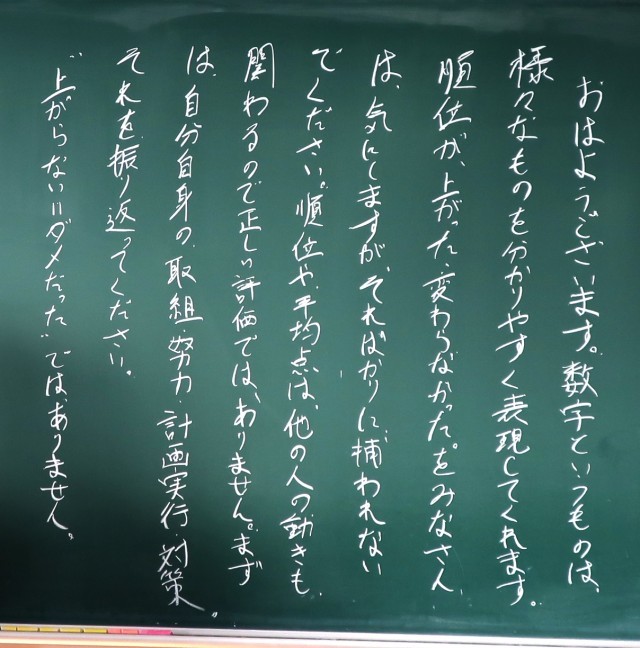 おはようございます。数字というものは、
様々なものを分かりやすく表現してくれます。
順位が、上がった・変わらなかった。をみなさん
は、気にしますが、そればかりに、捕われない
でください。順位や平均点は、他の人の動きも
関わるので正しい評価では、ありません。まず
は、自分自身の取組・努力・計画実行・対策。
それを振り返ってください。
"上がらない=ダメだった"では、ありません。